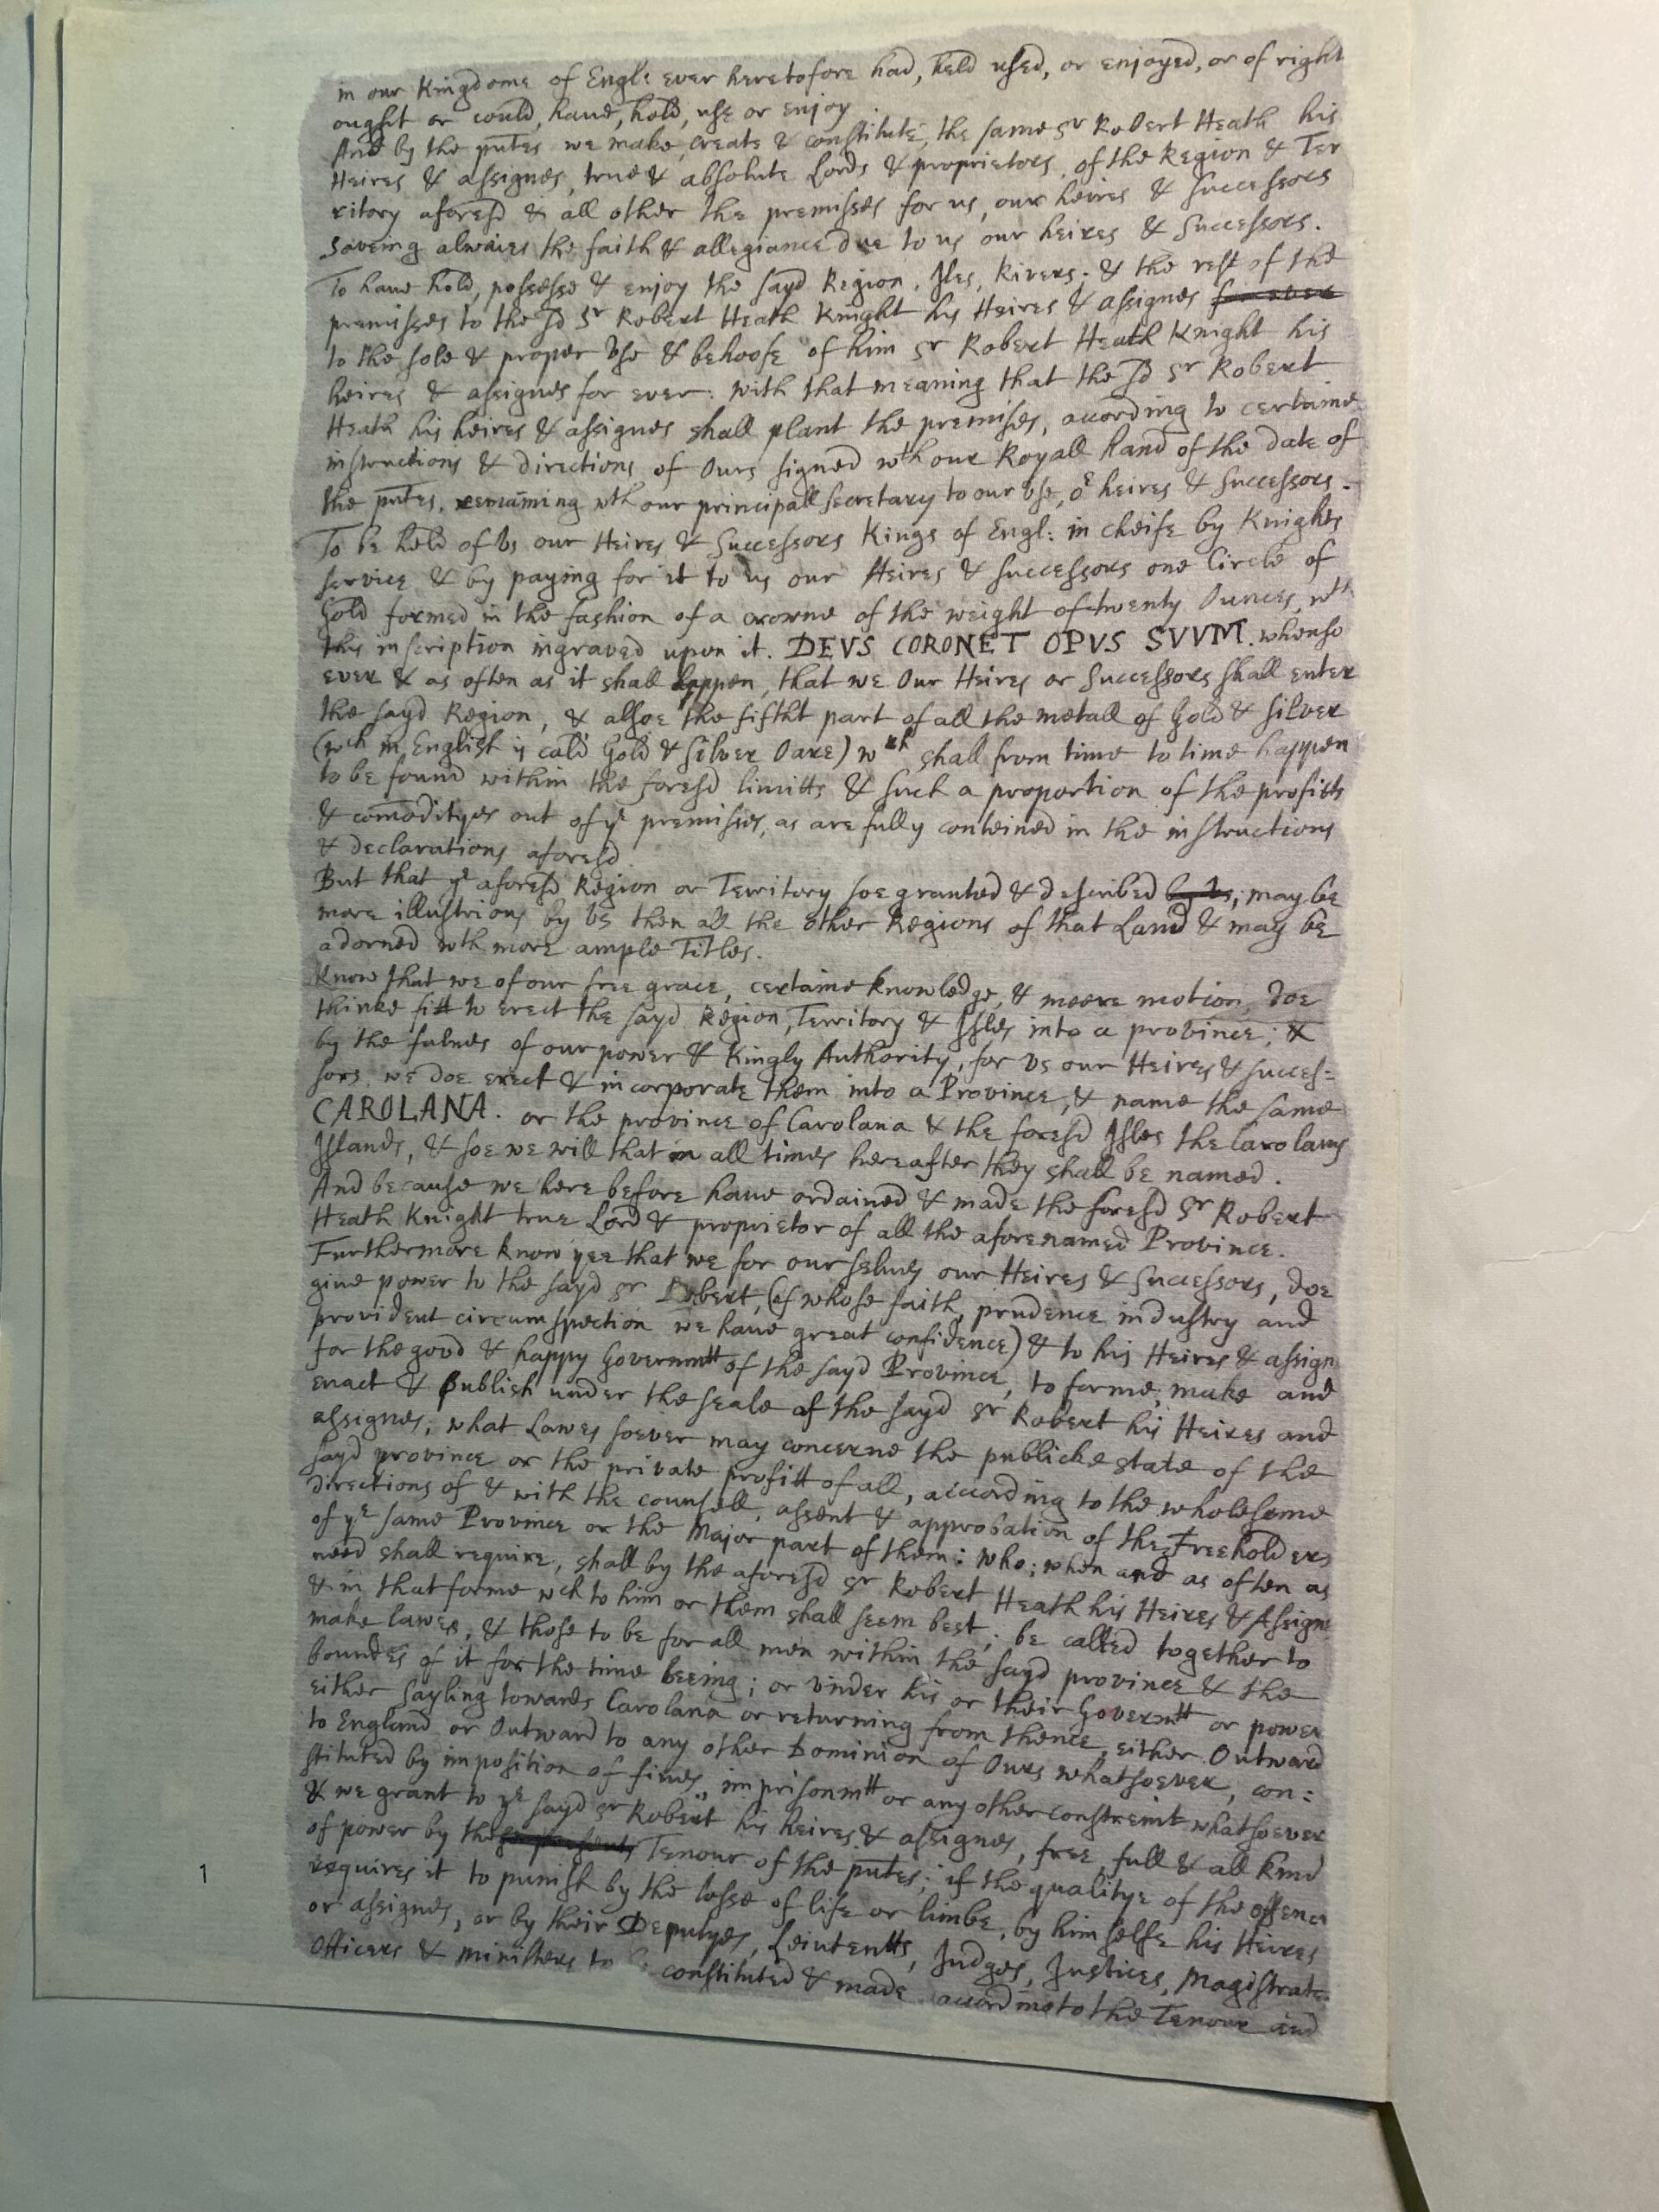 in our Kingdome of Engl: ever heretofore had, held used, or enjoyed, or of right
ought or could, haue, hold, use or enjoy
And by the pntes we make, create & constitute, the same Sr Robert Heath his
Heires & assignes, true & absolute Lords & proprietors, of the Region & Ter
ritory aforesd & all other the premisses for us, our heires & Successors
Saveing alwaies the faith & allegiance due to us our heires & Successors.
To haue hold, possesse & enjoy the sayd Region, Isles, Rivers, & the rest of the
premisses to the sd Sr Robert Heath Knight his Heires & assignes for ever
to the sole & proper Vse & behoofe of him Sr Robert Heath Knight his
heires & assignes for ever: with that meaning that the sd Sr Robert
Heath his heires & assignes shall plant the premises, acording to certaine
instructions & directions of Ours signed wth our Royall hand of the date of
the pntes, remaining wth our principall secretary to our Vse, or heires & Successors.
To be held of Vs our Heires & Successors Kings of Engl: in cheife by Knights
service & by paying for it to us our Heires & Successors one Circle of
Gold formed in the fashion of a crowne of the weight of twenty Ounces, wth
this inscription ingraved upon it. DEVS CORONET OPVS SVVM. whenso
ever & as often as it shall happen, that we Our Heires or Successors shall enter
the sayd Region, & alsoe the fiftht part of all the metall of Gold & Silver
(wch in English is cald Gold & Silver Oare) wch shall from time to time happen
to be found within the foresd limitts & such a proportion of the profitts
& comodityes out of ye premisses, as are fully conteined in the instructions
& declarations aforesd
But that ye aforesd Region or Territory soe granted & described by Vs; may be
more illustrious by Vs then all the other Regions of that Land & may be
adorned wth more ample Titles.
Know that we of our free grace, certaine knowledge, & meere motion, doe
thinke fitt to erect the sayd Region, Territory & Isles into a province; &
by the fulnes of our power & Kingly Authority, for Vs our Heires & succes=
sors, we doe erect & incorporate them into a Province, & name the same
CAROLANA. or the province of Carolana & the foresd Isles the Carolans
Islands, & soe we will that in all times hereafter they shall be named.
And because we here before haue ordained & made the foresd Sr Robert
Heath Knight true Lord & proprietor of all the aforenamed Province.
Furthermore know yee that we for our selues our Heires & Successors, doe
giue power to the sayd Sr Robert, (of whose faith, prudence, industry and
provident circumspection we haue great confidence) & to his Heires & assign
for the good & happy Governmtt of the sayd Province, to forme, make and
enact & publish under the seale of the sayd Sr Robert his Heires and
assignes, what Lawes soever may concerne the publicke state of the
sayd province or the private profitt of all, according to the wholesome
directions of & with the counsell, assent & approbation of the Freeholders
of ye same Province or the Major part of them: who; when and as often as
need shall require, shall by the aforesd Sr Robert Heath his Heires & Assigns
& in that forme wch to him or them shall seem best; be called together to
make lawes, & those to be for all men within the sayd province & the
boundes of it for the time beeing; or vnder his or their Governtt or power
either sayling towards Carolana or returning from thence, either Outward
to England or Outward to any other Dominion of Ours whatsoever, con:
stituted by imposition of fines, imprisonmtt or any other constreint whatsoever
& we grant to ye sayd Sr Robert his heires & assignes, free, full & all kind
of power by the Tenour of the pntes; if the qualitye of the offence
requires it to punish by the losse of life or limbe, by himselfe his Heires
or assignes, or by their Deputyes, Leiutentts, Judges, Justices, Magistrates
Officers & ministers to constituted & made according to the Tenour and
1